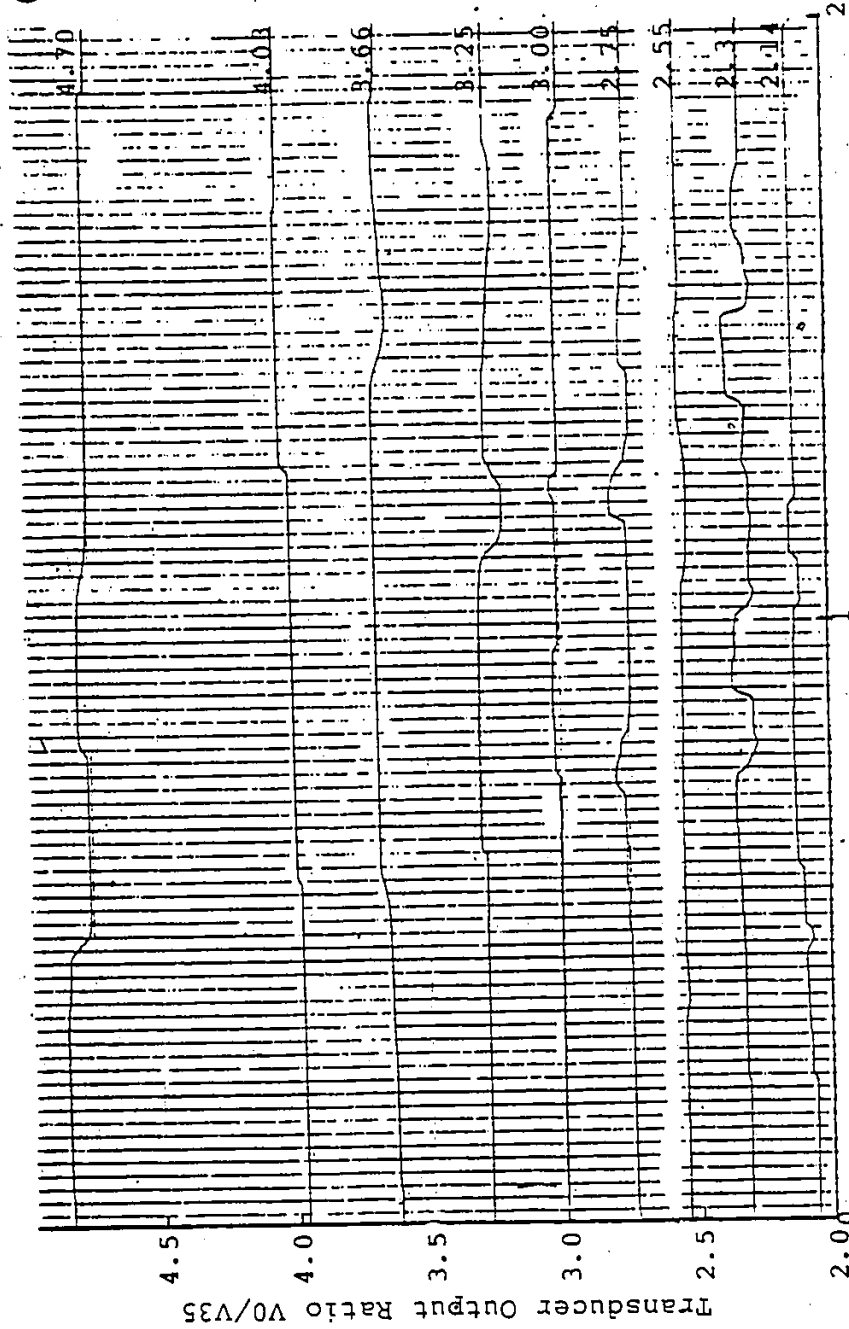 4.70
4.03
3.66
3.25
3.00
2.75
2.55
2.3
2.14
4.5
4.0
3.5
3.0
2.5
2.0
2
Transducer Output Ratio V0/V35